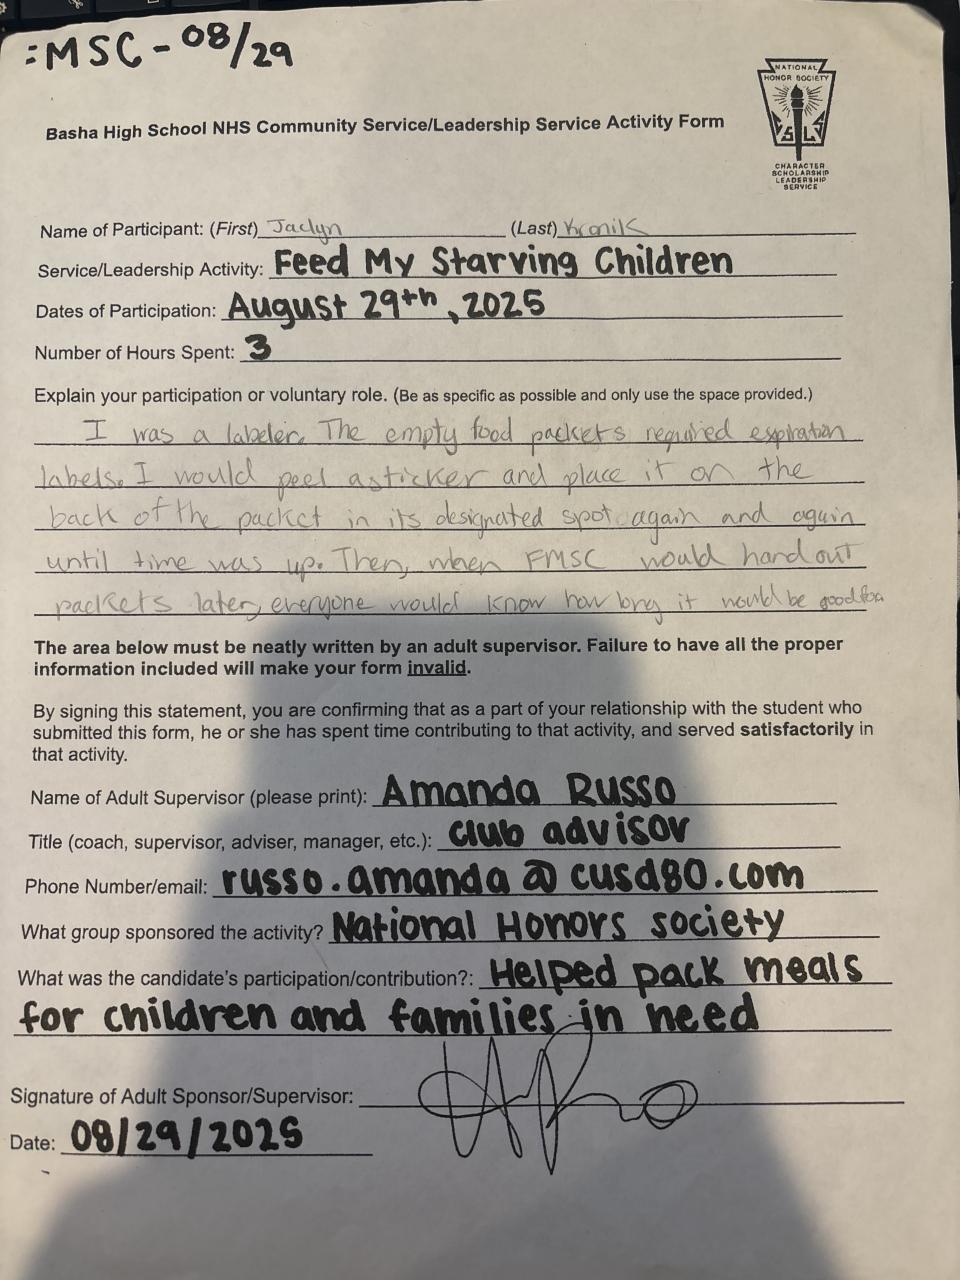 :MSC - 08/29
NATIONAL
HONOR SOCIETY
CSLS
CHARACTER
SCHOLARSHIP
LEADERSHIP
SERVICE
Basha High School NHS Community Service/Leadership Service Activity Form
Name of Participant: (First) Jaclyn (Last) Kronik
Service/Leadership Activity: Feed My Starving Children
Dates of Participation: August 29th, 2025
Number of Hours Spent: 3
Explain your participation or voluntary role. (Be as specific as possible and only use the space provided.)
I was a labeler. The empty food packets required expiration
labels. I would peel a sticker and place it on the
back of the packet in its designated spot again and again
until time was up. Then, when FMSC would hand out
packets later, everyone would know how long it would be good for.
The area below must be neatly written by an adult supervisor. Failure to have all the proper
information included will make your form invalid.
By signing this statement, you are confirming that as a part of your relationship with the student who
submitted this form, he or she has spent time contributing to that activity, and served satisfactorily in
that activity.
Name of Adult Supervisor (please print): Amanda Russo
Title (coach, supervisor, adviser, manager, etc.): club advisor
Phone Number/email: russo.amanda@cusd80.com
What group sponsored the activity? National Honors society
What was the candidate's participation/contribution?: Helped pack meals
for children and families in need
Signature of Adult Sponsor/Supervisor:
Date: 08/29/2025